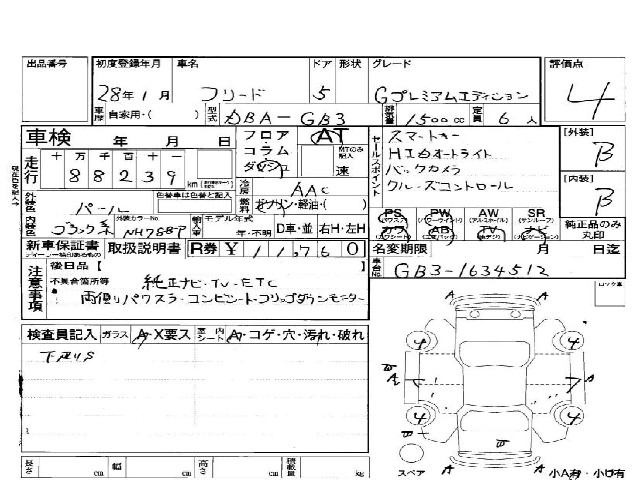 出品番号 初度登録年月 車名 ドア 形状 グレード 評価点
28年1月 フリード 5 Gプレミアムエディション 4
車歴 自家用・( ) 型式 DBA-GB3 排気量 1500cc 定員 6人
車検 年 月 日 フロア AT セールスポイント スマートキー [外装]
走行 十 万 千 百 十 コラム MTのみ記入 HIDオートライト B
88239 km ダッシュ 速 バックカメラ
外装色 パール 色替車は色替と記入 冷房 AAC クルーズコントロール [内装]
燃料 ガソリン・軽油・( ) B
内装色 ブラック系 外装カラーNo. NH788P 輸入車 モデル年式 年・不明 D車・並 右H・左H
PS PW AW SR
カワ AB TV ナビ 純正品のみ丸印
新車保証書 取扱説明書 R券 ¥11,760 名変期限 月 日迄
注意事項 後日品【 】 車台No. GB3-1634512
不具合箇所等 純正ナビ・TV・ETC ロック車
両側パワスラ・コンビシート・フリップダウンモニター
検査員記入 ガラス A・X要ス 室内 シート A・コゲ・穴・汚れ・破れ
下廻りS
長さ cm 幅 cm 高さ cm 積載量 kg
スペア 小A有・小U有